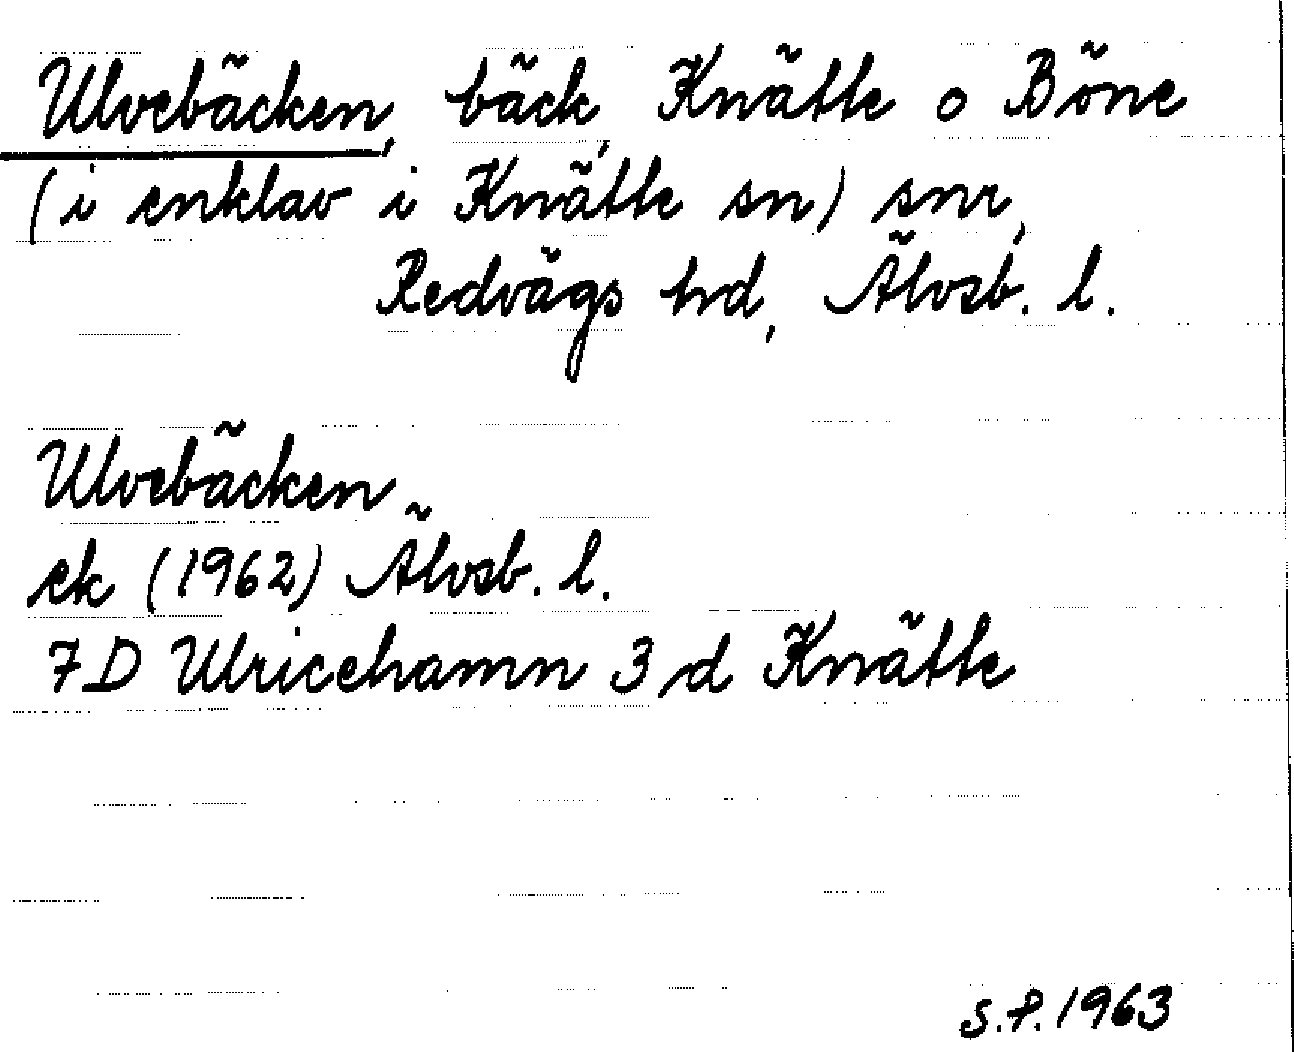 Ulvebäcken, bäck, Knätte o Böne
(i enklav i Knätte sn) snr,
Redvägs hd, Älvsb. l.
Ulvebäcken
ek (1962) Älvsb. l.
7D Ulricehamn 3 d Knätte
S.P. 1963